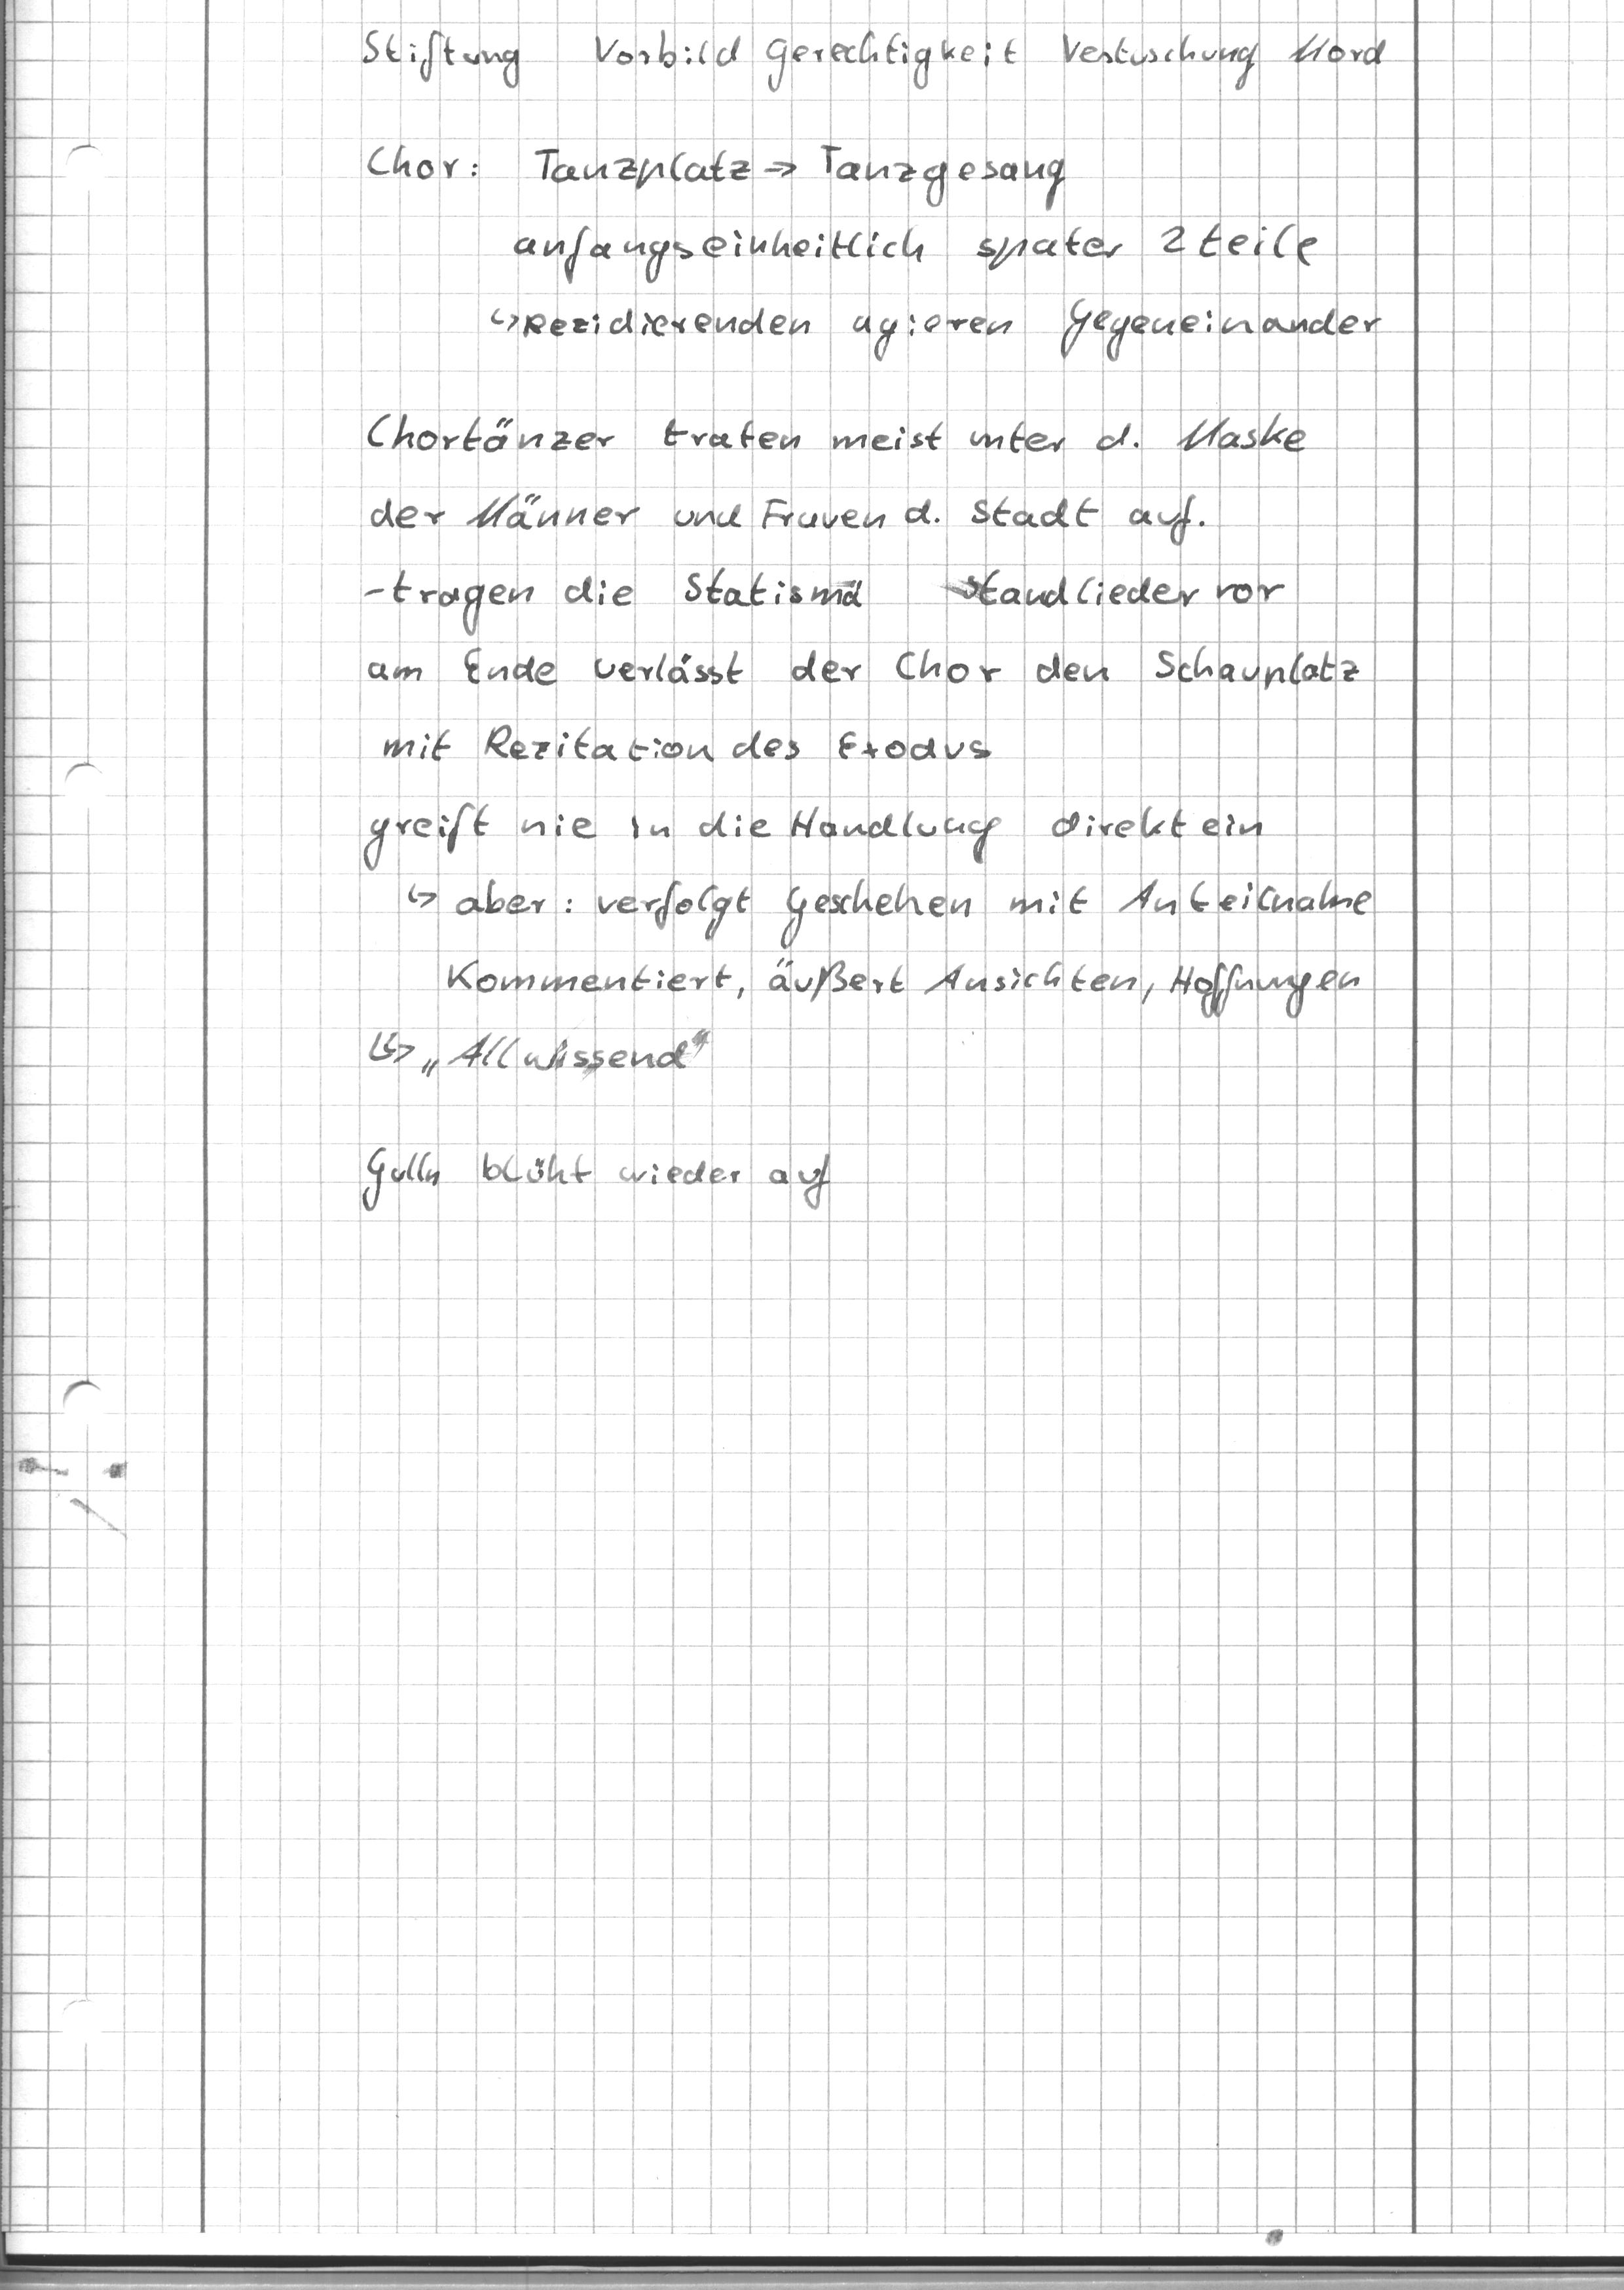 Stiftung Vorbild Gerechtigkeit Vertuschung Mord
Chor: Tanzplatz → Tanzgesang
anfangseinheitlich spater 2 teile
↳ Rezidierenden agieren gegeneinander
Chortänzer traten meist unter d. Maske
der Männer und Frauen d. Stadt auf.
- tragen die Statismä Standlieder vor
am Ende verlässt der Chor den Schauplatz
mit Rezitation des Exodus
greift nie in die Handlung direkt ein
↳ aber: verfolgt Geschehen mit Anteilnahme
Kommentiert, äußert Ansichten, Hoffnungen
↳ „Allwissend"
Gulln blüht wieder auf